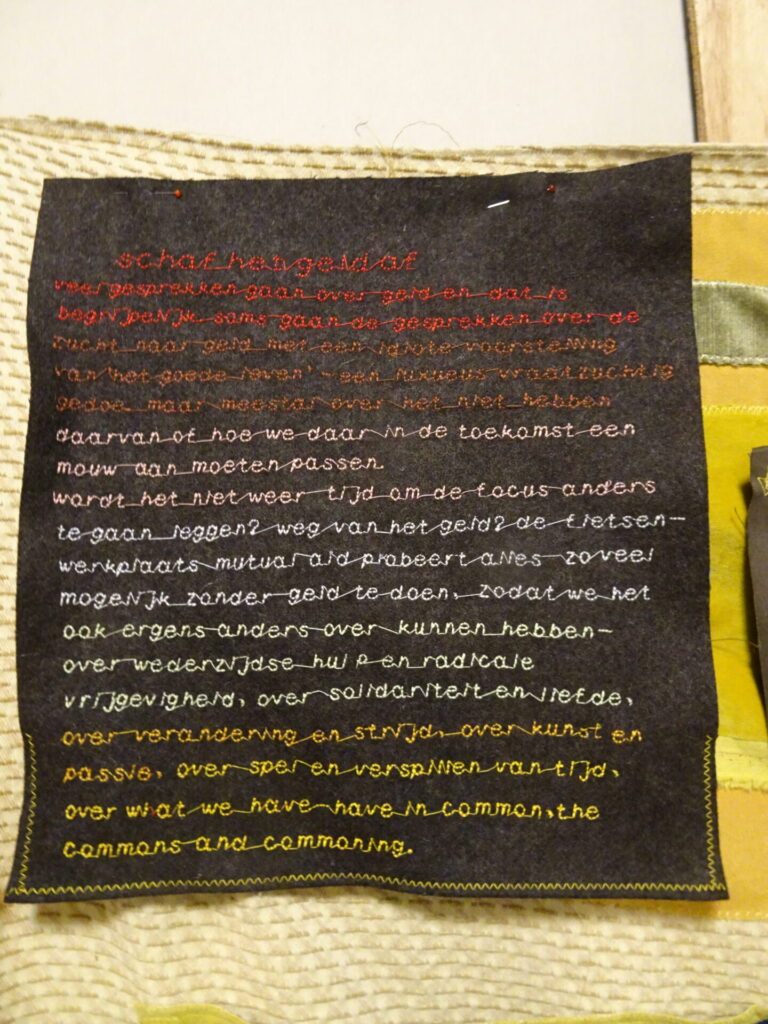 schaf het geld af
veel gesprekken gaan over geld en dat is
begrijpelijk. soms gaan de gesprekken over de
zucht naar geld met een idiote voorstelling
van 'het goede leven' - een luxueus vraatzuchtig
gedoe. maar meestal over het niet hebben
daarvan of hoe we daar in de toekomst een
mouw aan moeten passen.
wordt het niet weer tijd om de focus anders
te gaan leggen? weg van het geld? de fietsen-
werkplaats mutual aid probeert alles zoveel
mogelijk zonder geld te doen, zodat we het
ook ergens anders over kunnen hebben-
over wederzijdse hulp en radicale
vrijgevigheid, over solidariteit en liefde,
over verandering en strijd, over kunst en
passie, over spel en verspillen van tijd,
over what we have have in common, the
commons and commoning.